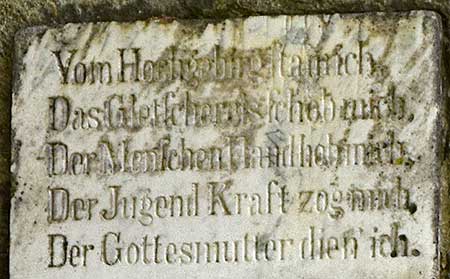 Vom Hochgebirg stam ich,
Das Gletschereis schob mich,
Der Menschen Hand hob mich,
Der Jugend Kraft zog mich,
Der Gottesmutter dien' ich.